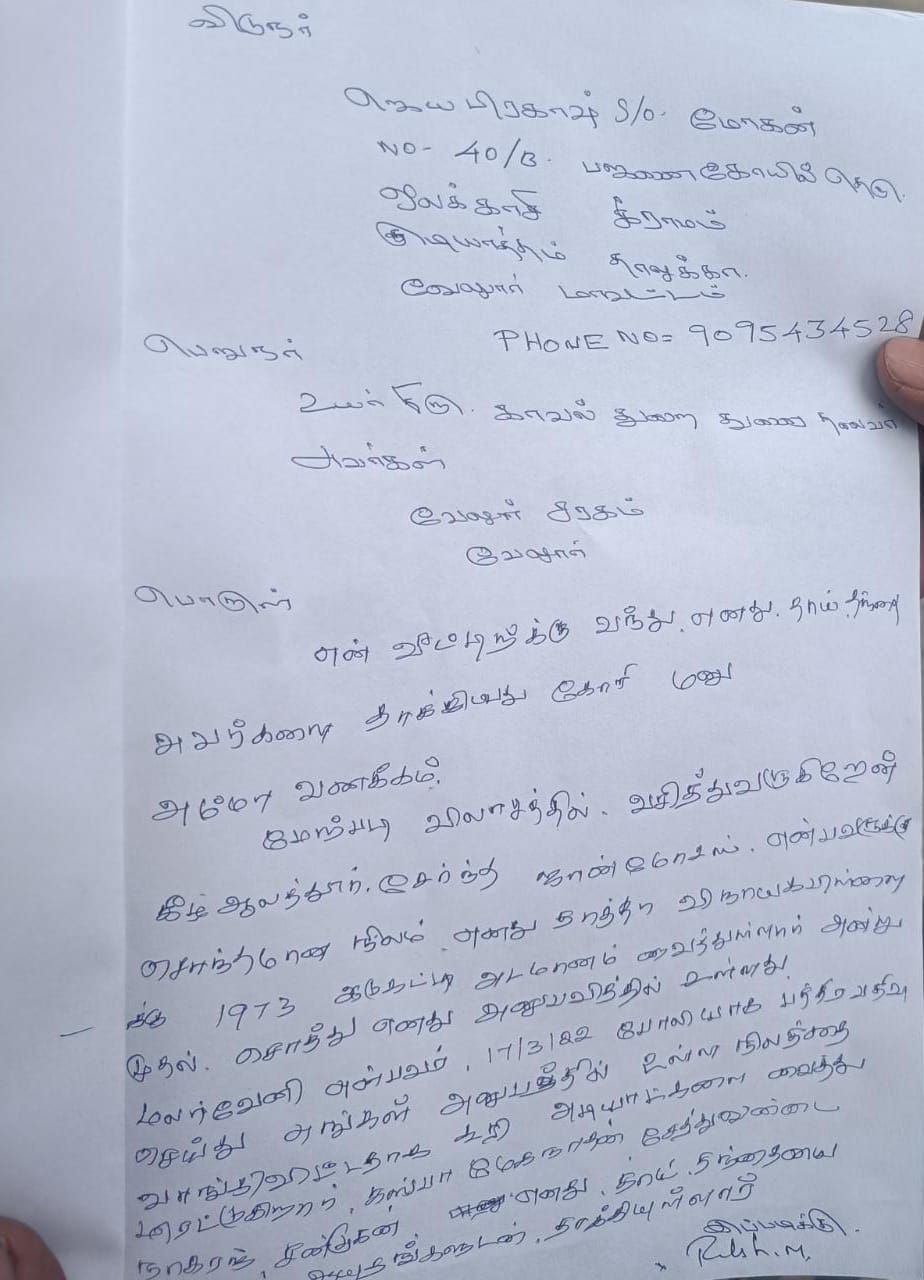 விடுநர்
ஜெய பிரகாஷ் S/o. மோகன்
NO- 40/B. பஜனைகோயில் தெரு.
ஒலக்காசி கிராமம்
குடியாத்தம் தாலுக்கா.
வேலூர் மாவட்டம்
PHONE NO= 9095434528
பெறுநர்
உயர்திரு. காவல் துறை துணை தலைவர்
அவர்கள்
வேலூர் சரகம்
வேலூர்
பொருள்
என் வீட்டிற்க்கு வந்து. எனது. தாய் தந்தை
அவர்களை தாக்கியது கோரி மனு
அம்மா வணக்கம்.
மேற்படி விலாசத்தில். வசித்துவருகிறேன்
கீழ் ஆலத்தூர். சேர்ந்த ஜான்மோசஸ். என்பவருக்கு
சொந்தமான நிலம். எனது தாத்தா விநாயகபிள்ளை
க்கு 1973 அடமானம் வைத்துள்ளார் அன்று
முதல். சொத்து எனது அனுபவித்தில் உள்ளது.
மலர்வேணி என்பவர். 17/3/22 போலியாக பத்திர பதிவு
செய்து எங்கள் அனுபத்தில் உள்ள நிலத்தை
வாங்கிவிட்டதாக கூறி அடியாட்களை வைத்து
மிரட்டுகிறார். மேகநாதன் சேத்துவண்டை
எனது. தாய். தந்தையை
ஆயுதங்களுடன். தாக்கியுள்ளார்
இப்படிக்கு.